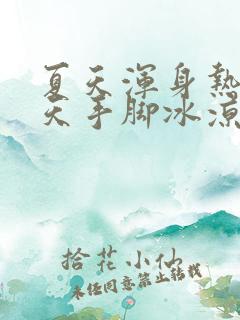 夏天渾身熱
天手脚冰涼
拾花小仙
未经同意禁止转载